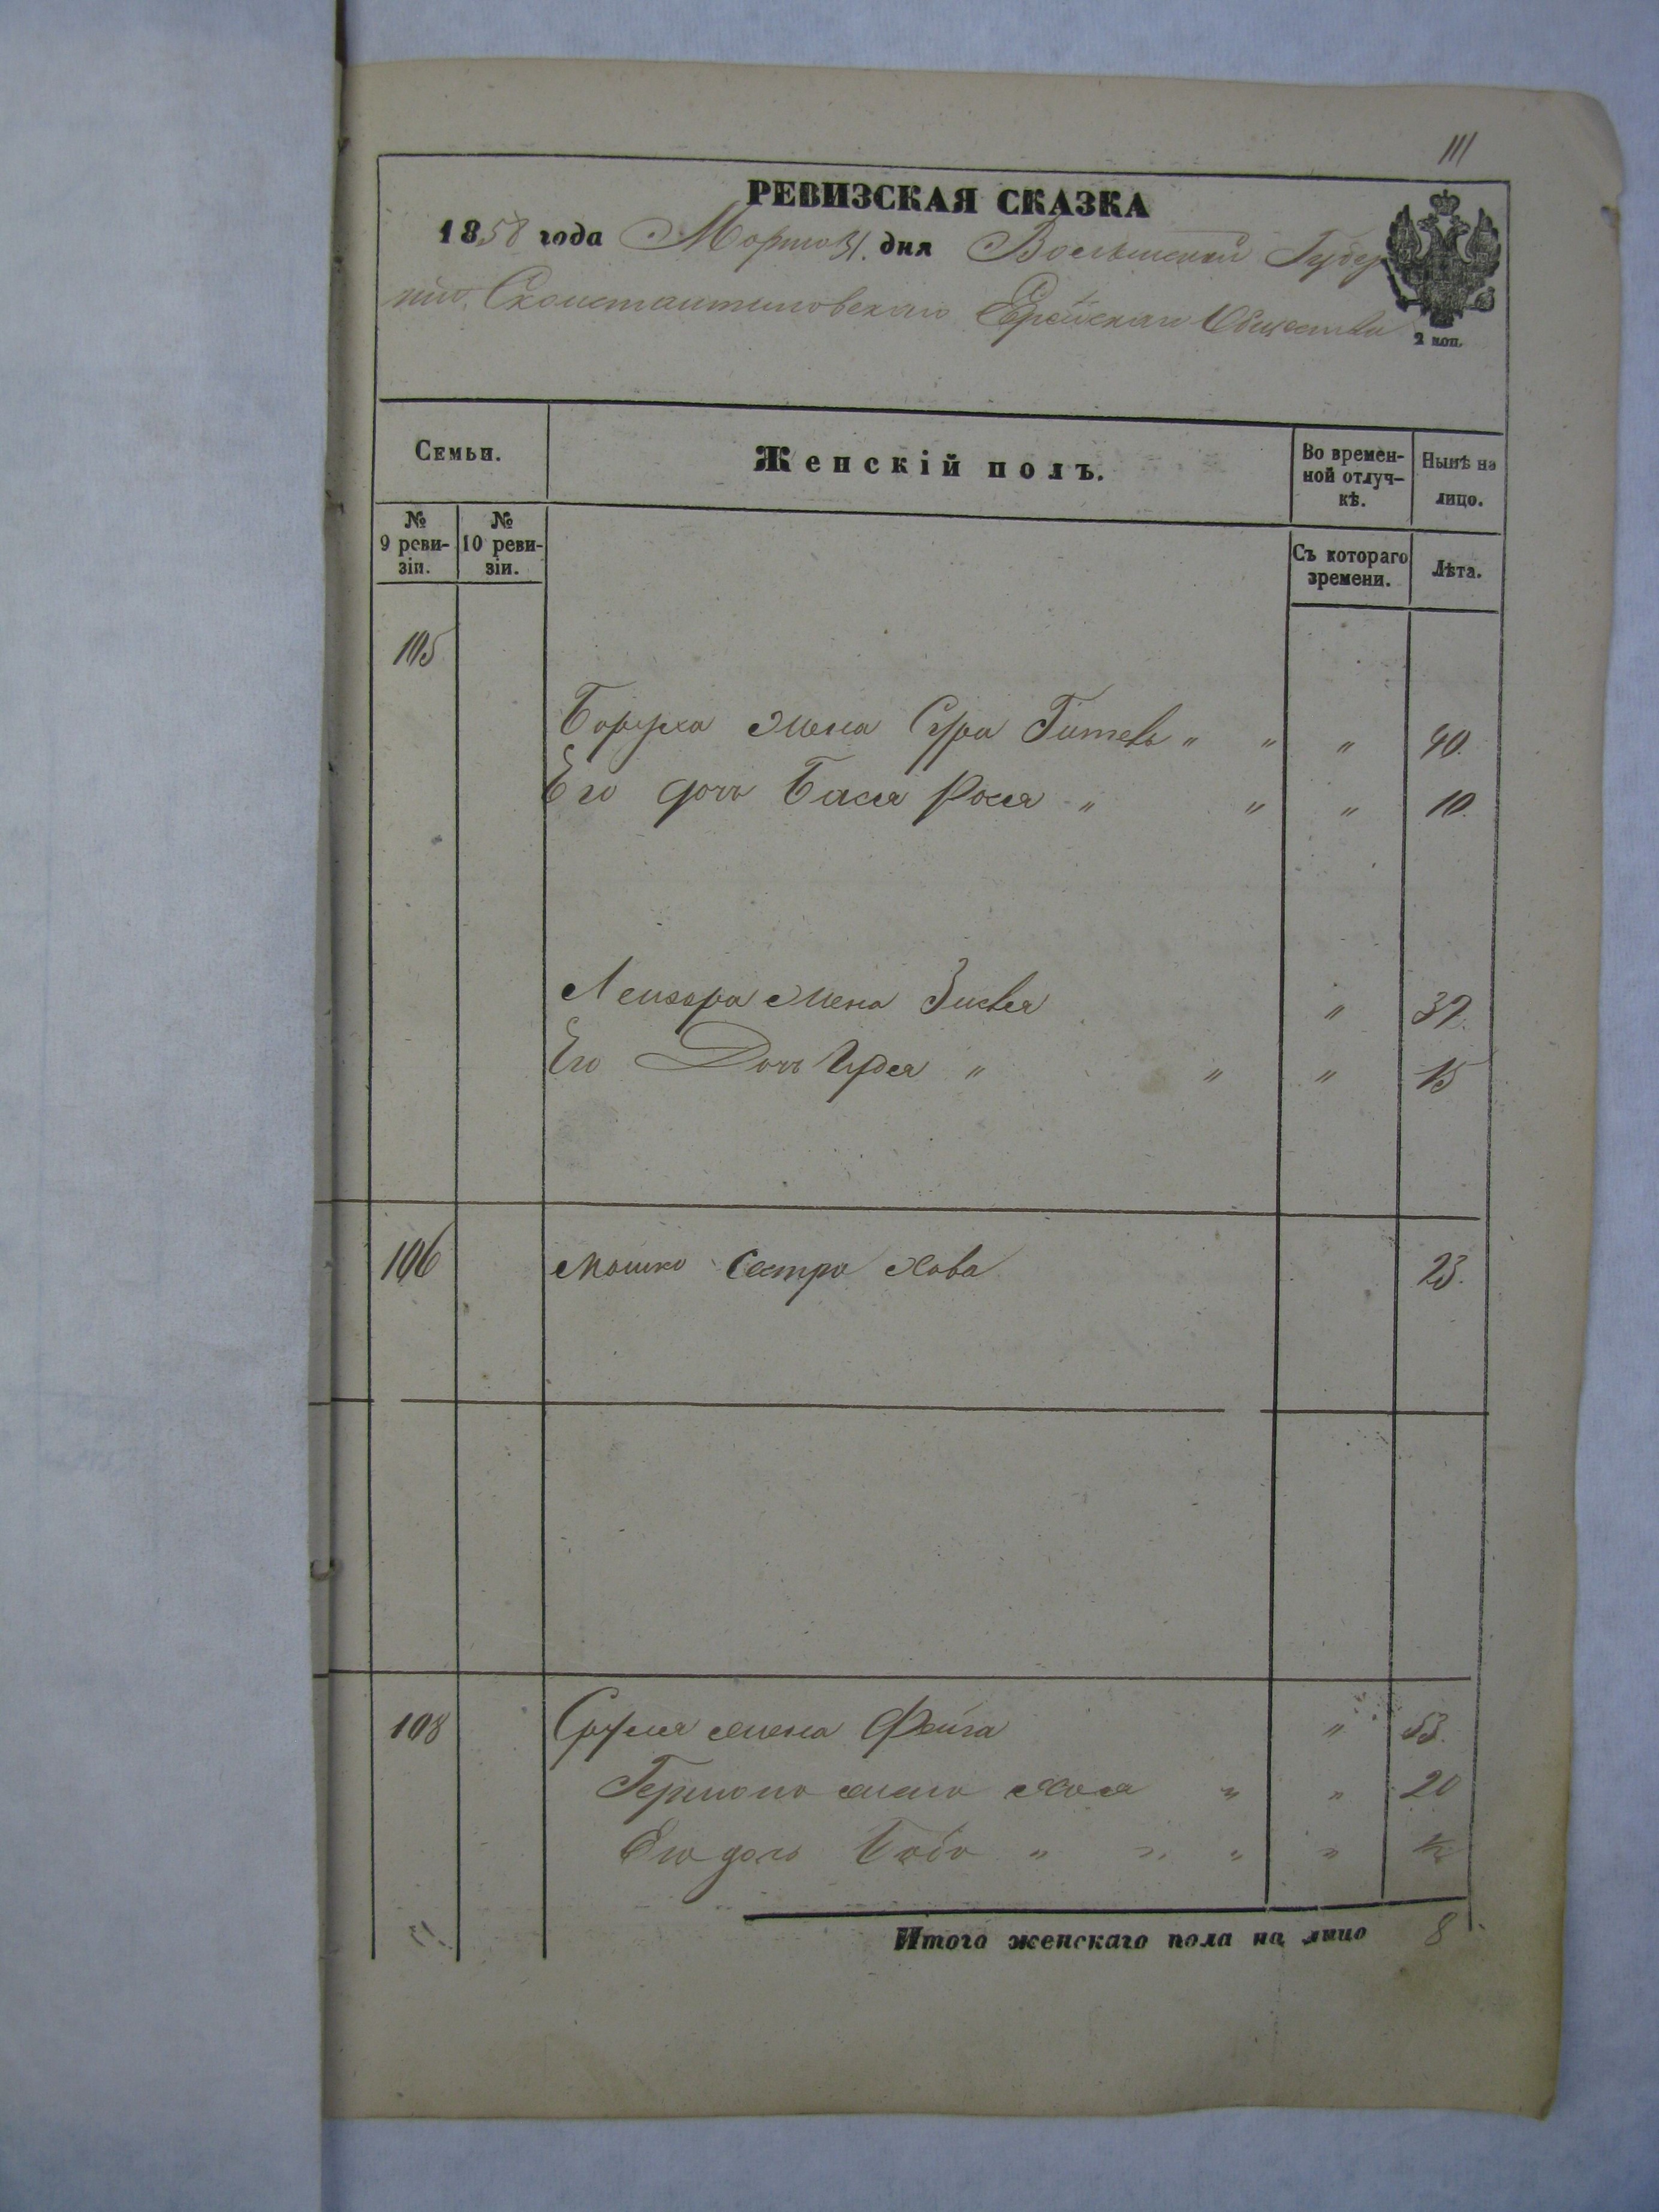 111
РЕВИЗСКАЯ СКАЗКА
1858 года Марта 31. дня Волынской Губер
нии, Сконстантиновскаго Еврейскаго Общества
2 коп.
Семьи.
Женскій полъ.
Во времен-
ной отлуч-
кѣ.
Нынѣ на
лицо.
№
9 реви-
зіи.
№
10 реви-
зіи.
Съ котораго
времени.
Лѣта.
105
Боруха жена Сура Гитель " " " 40.
Его дочь Бася Рося " " " 10.
Лейзора жена Зисля " 37.
Его Дочь Гудея " " " 15
106 Мошко Сестра Хава 23.
108 Сруля жена Фейга " 53.
Гершона жена Хая " " 20
Его дочь " " " "
Итого женскаго пола на лицо 8